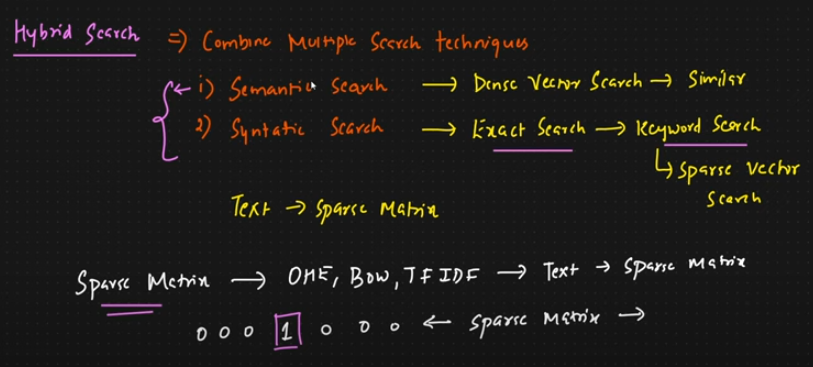 Hybrid Search => Combine Multiple Search techniques
1) Semantic Search → Dense Vector Search → Similar
2) Syntatic Search → Exact Search → Keyword Search
↳ Sparse Vector
Search
Text → Sparse Matrix
Sparse Matrix → OHE, BOW, TFIDF → Text → Sparse Matrix
0 0 0 1 0 0 0 ← Sparse Matrix →